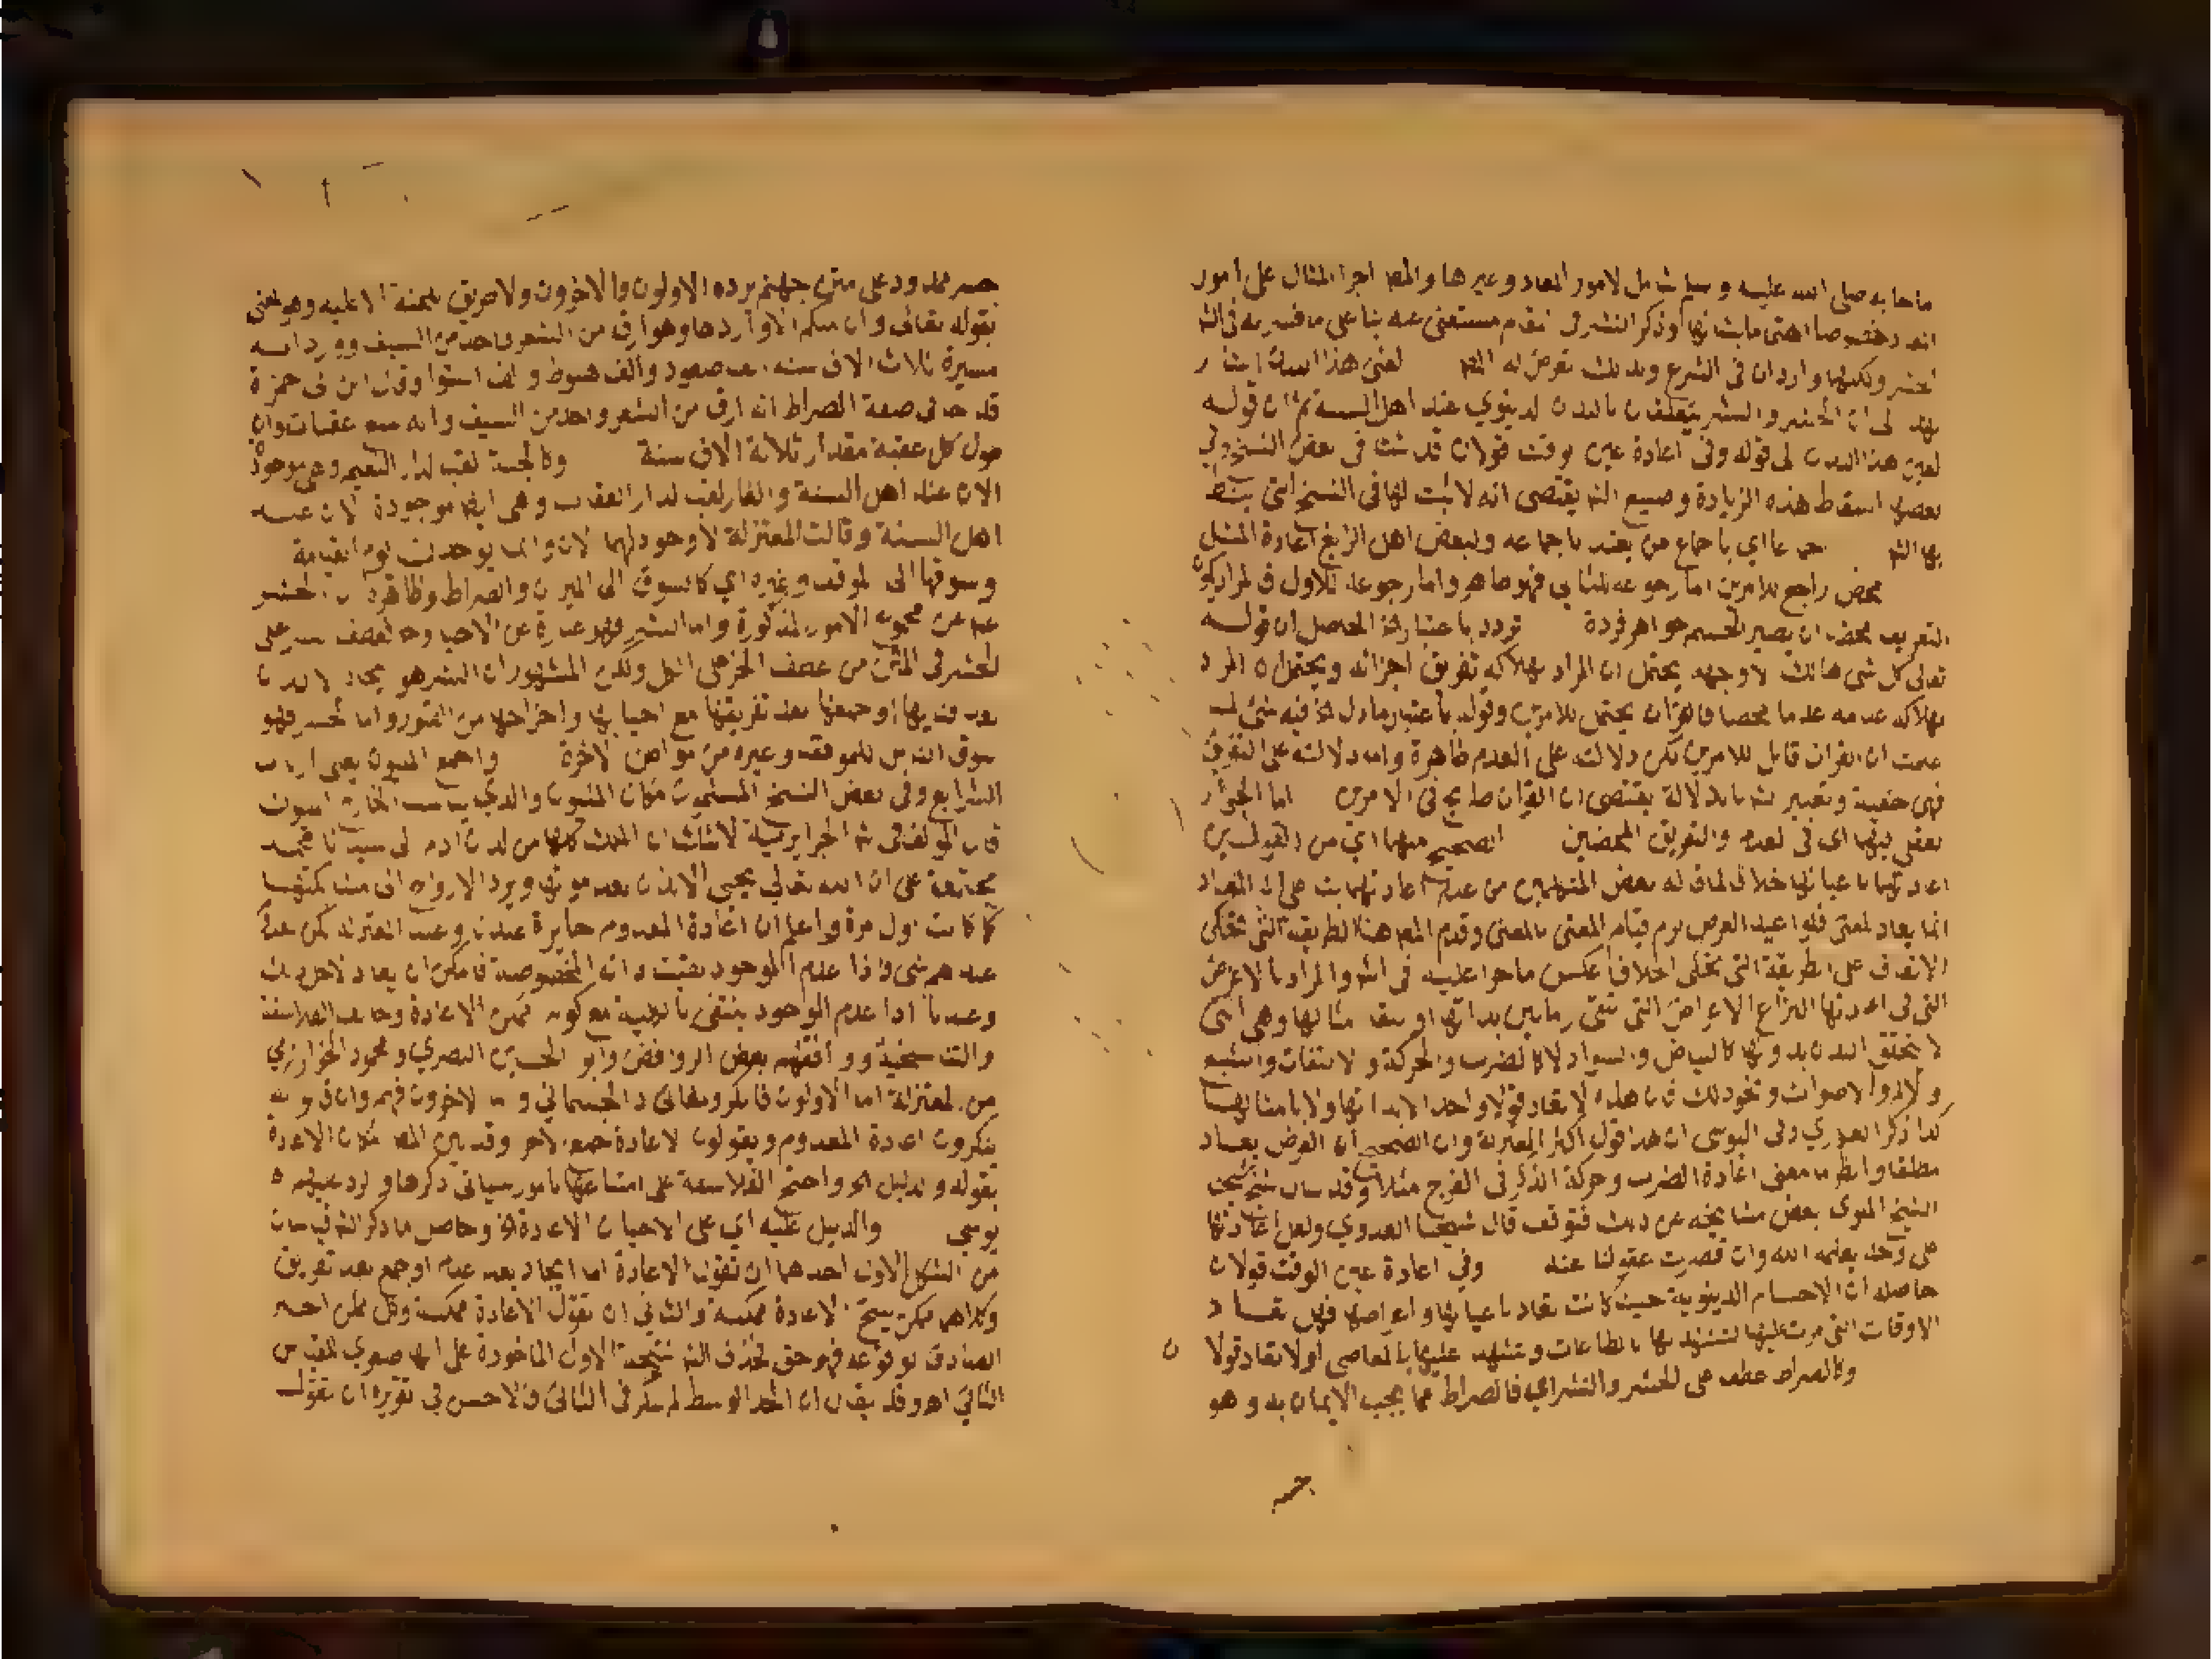 ما جا به صلى الله عليه وسلم شامل لامور المعاد وغيرها والمص اجرا المثال على امور
وذكر النشر في مستغنى عنه بنا على ما فسر به في الش
وكلها واردان في الشرع وبذلك تعرض له الش لغني هذا البدن
الى ان الحشر والنشر يتعلقان بالبدن الدنيوي عند اهل السنة قوله
لعين هذا البدن الى قوله وفي اعادة عين الوقت قولان قد ثبت في بعض النسخ وفي
بعضها اسقاط هذه الزيادة وصنيع الش يقتضي انه لا ثبت لها في النسخ التي
بها الش اي باجماع من يعتد باجماعه ولبعض اهل الزيغ اعادة المثل
محض راجع للامرين اما رجوعه للثاني فهو ظاهر واما رجوعه للاول فالمراد بكون
التفريق محضا ان يصير الجسم جواهر فردة تردد باعتبار الخ الحاصل ان قوله
تعالى كل شي هالك الا وجهه يحتمل ان المراد بهلاكه تفريق اجزائه ويحتمل ان المراد
بهلاكه عدمه عدما محضا فالقران يحتمل للامرين وقوله باعتبار ما دل الخ فيه شي
علمت ان القران قابل للامرين لكن دلالته على العدم ظاهرة واما دلالته على التفريق
فهي خفية وتعبير الش بالدلالة يقتضي ان القران صريح في الامرين اما الجواز
العقلي فيهما اي في العدم والتفريق المحضين الصحيح منهما اي من القولين
اعادتها باعيانها خلافا لما قاله بعض المتكلمين من عدم اعادتها بناء على ان المعاد
انما يعاد لمعنى فلو اعيد العرض لزم قيام المعنى بالمعنى وقدم المص هنا الطريقة التي تحكى
الاتفاق على الطريقة التي تحكى الخلاف عكس ما جرا عليه في الش والمراد بالاعراض
التي في اعادتها النزاع الاعراض التي تبقى زمانين بذاتها او بتعقب امثالها وهي التي
لا يخلق البدن بدونها كالبياض والسواد لا كالضرب والحركة والالتفات
والاصوات ونحو ذلك فان هذه لا تعاد قولا واحدا لا بذاتها ولا بامثالها
كذا ذكر العدوي وفي اليوسي ان هذا قول اكثر المعتزلة وان الصحيح ان العرض يعاد
مطلقا وانظر ما معنى اعادة الضرب وحركة الذكر في الفرج مثلا وقد سال شيخ شيخنا
الشيخ الملوي بعض مشايخه عن ذلك فتوقف قال شيخنا العدوي ولعل اعادتها
على وجه يعلمه الله وان قصرت عقولنا عنه وفي اعادة عين الوقت قولان
حاصله ان الاجسام الدنيوية حيث كانت تعاد باعيانها واعراضها فهل تعاد
الاوقات التي مرت عليها لتشهد لها بالطاعات وتشهد عليها بالمعاصي او لا تعاد قولا
ن
وكالصراط عطف على كالحشر والنشر اي فالصراط مما يجب الايمان به وهو
جسر ممدود على متن جهنم يرده الاولون والاخرون ولا طريق للجنة الا عليه وهو المعني
بقوله تعالى وان منكم الا واردها وهو ارق من الشعر واحد من السيف وورد انه
مسيرة ثلاث الاف سنة الف صعود والف هبوط والف استوا وقال ابن ابي حمزة
قد جا في صفة الصراط انه ارق من الشعر واحد من السيف وانه سبع عقبات وان
طول كل عقبة مقدار ثلاثة الاف سنة وكالجنة لقب لدار النعيم وهي موجودة
الان عند اهل السنة والنار لقب لدار العقاب وهي ايضا موجودة الان عند
اهل السنة وقالت المعتزلة لا وجود لهما الان وانما يوجدان يوم القيامة
وسوقها الى الموقف وغيره اي كالسوق الى الميزان والصراط وظاهره ان الحشر
عبارة عن مجموع الامور المذكورة واما النشر فهو عبارة عن الاحيا وحده فعطف النشر على
الحشر في المتن من عطف الجز على الكل ولكن المشهور ان النشر هو ايجاد الابدان
بعد فنائها او جمعها بعد تفريقها مع احيائها واخراجها من القبور واما الحشر فهو
سوق الناس للموقف وغيره من مواطن الاخرة واجمع المليون يعني ارباب
الشرايع وفي بعض النسخ المسلمون مكان المليون والذي يناسب
قال المؤلف في ش الجزايرية لا شك ان الملك كلها من لدن ادم الى سيدنا محمد
مجتمعة على ان الله تعالى يحيي الابدان بعد موتها ويرد الارواح الى
كما كانت اول مرة واعلم ان اعادة المعدوم جايزة عندنا وعند المعتزلة لكن
عندهم شي فاذا عدم الموجود بقيت ذاته المخصوصة فامكن ان يعاد لاجل ذلك
وعندنا اذا عدم الموجود ينتفى بالكلية مع كونه ممكن الاعادة وخالف الفلاسفة
والتناسخية ووافقهم بعض الروافض وابو الحسين البصري ومحمود الخوارزمي
من المعتزلة اما الاولون فانكروا المعاد الجسماني واما الاخرون فهم وان قالوا به
ينكرون اعادة المعدوم ويقولون الاعادة جمع الاجزا وقد بين المص مكان الاعادة
بقوله والدليل الخ واحتج الفلاسفة على امتناعها بامور سياتي ذكرها والرد عليهم ه
يوسي والدليل عليه اي على الاحيا او الاعادة الخ وحاصل ما ذكر الش قياسان
من الشكل الاول احدهما ان تقول الاعادة اما ايجاد بعد عدم او جمع بعد تفريق
وكلاهما ممكن ينتج الاعادة ممكنة والثاني ان تقول الاعادة ممكنة وكل ممكن اخبر
الصادق بوقوعه فهو حق فحذف الش نتيجة الاول الماخوذة على انها صغرى للقياس
الثاني اه وقد يقال ان الحد الوسط لم يتكرر في الثاني فالاحسن في تقريره ان تقول